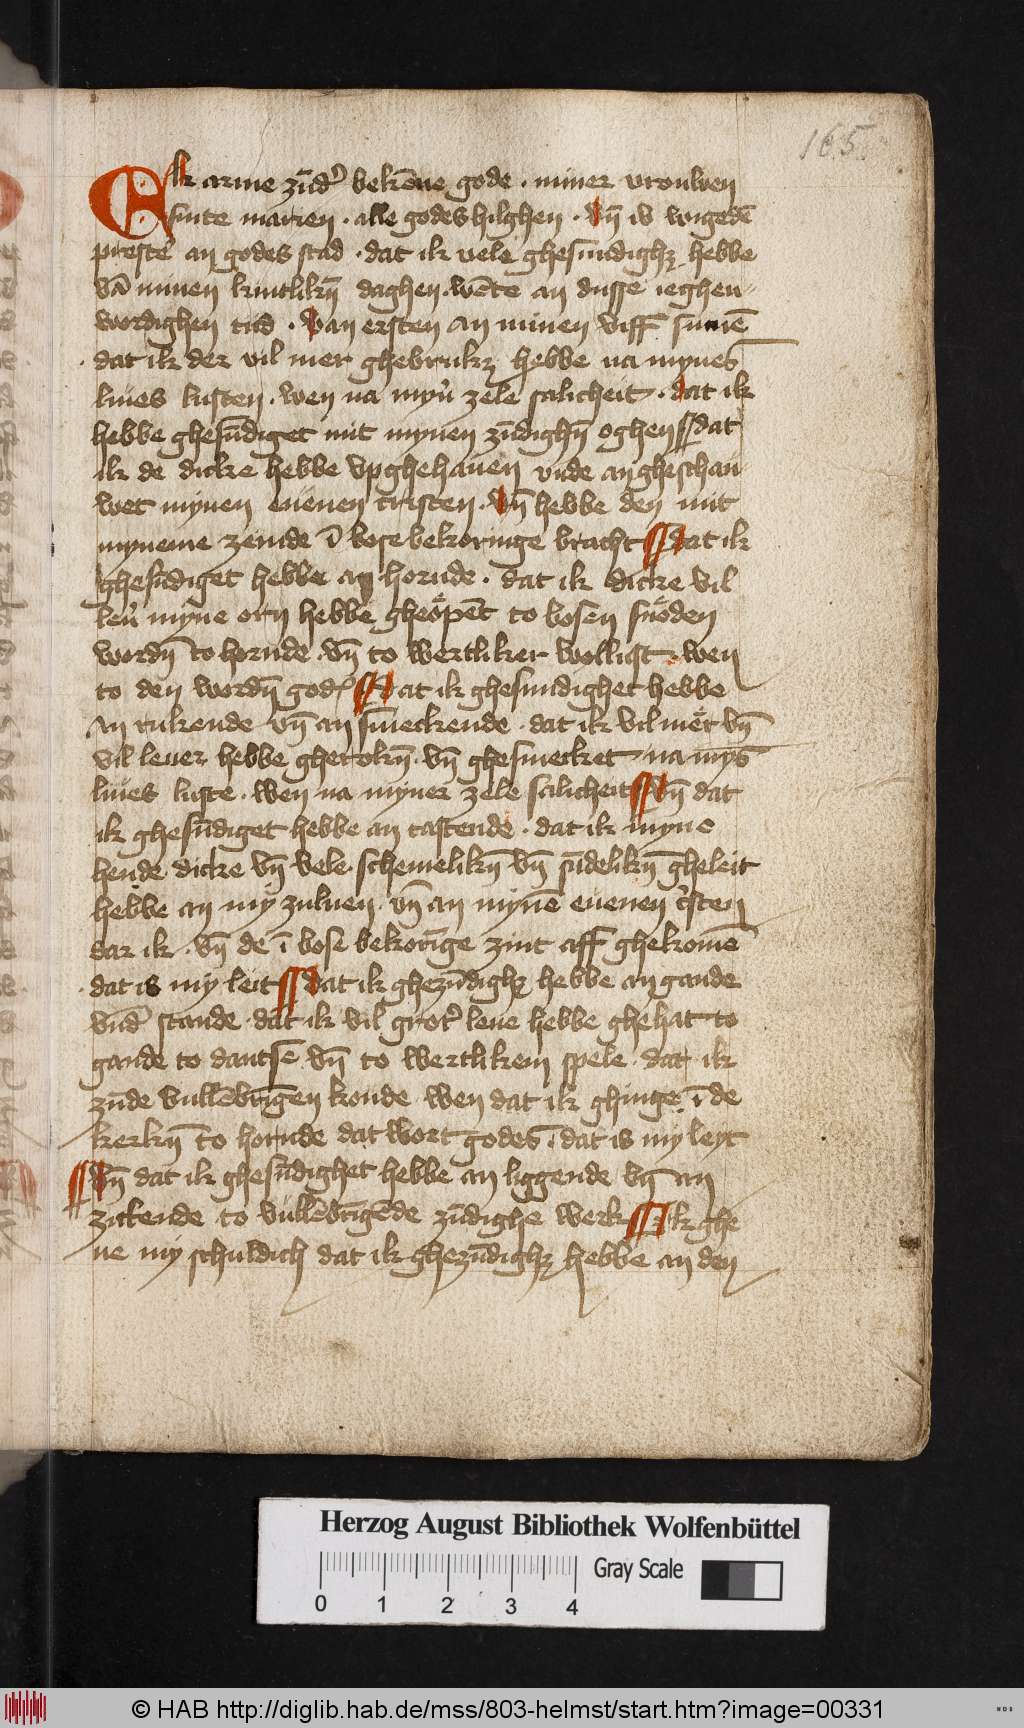 165
Ik arme zūd' bekēne gode . miner vrouwen
sunte marien . alle godes hilghen . vn̄ iv wigedē
prest'e an godes stad . dat ik vele ghesundighꝫ hebbe
vā minen kintlikn̄ daghen . wēte an dusse ieghen-
wordighen tiid . van ersten an minen viff sinnē
. dat ik der vil mer ghebrukꝫ hebbe na mynes
liues lusten . wen na myn' zele salicheit . dat ik
hebbe ghesūdiget mit mynen zūdighn̄ oghen dat
ik de dicke hebbe vpghehauen vnde angheschau
wet mynen euenen cristen . vn̄ hebbe den mit
myneme zeinde ī bose bekoringe bracht dat ik
ghesūdiget hebbe an hornde . dat ik dicke vil
leu' myne orn hebbe gheopēt to bosen snoden
wordn̄ to hornde . vn̄ to wertliker wollust . wen
to den wordn̄ god' Dat ik ghesundighet hebbe
an rukende vn̄ an smeckende . dat ik vil mer vn̄
vil leuer hebbe gherokn̄ . vn̄ ghesmecket na mys
liues luste . wen na myner zele salicheit vn̄ dat
ik ghesūdiget hebbe an tastende . dat ik myne
hende dicke vn̄ vele schemelikn̄ vn̄ sūdelikn̄ gheleit
hebbe an my zuluen vn̄ an mynē euenen c'sten
dar ik . vn̄ de ī bose bekorīge zint aff ghekomē
. dat is my leit dat ik ghezūdighꝫ hebbe an gande
vnd' stande . dat ik vil grot' leue hebbe ghehat to
gande to dantse vn̄ to wertlikem spele . dat ik
zūde vullēbrīgen konde wen dat ik ghinge ī de
kerkn̄ to hornde dat wort godes . dat is my leyt
vn̄ dat ik ghesūdighet hebbe an liggende vn̄ an
zittende to vullēbrīgēde zūdighe werk Ik ghe
ue my schuldich dat ik ghezūdighꝫ hebbe an den
Herzog August Bibliothek Wolfenbüttel
Gray Scale
0 1 2 3 4
© HAB http://diglib.hab.de/mss/803-helmst/start.htm?image=00331